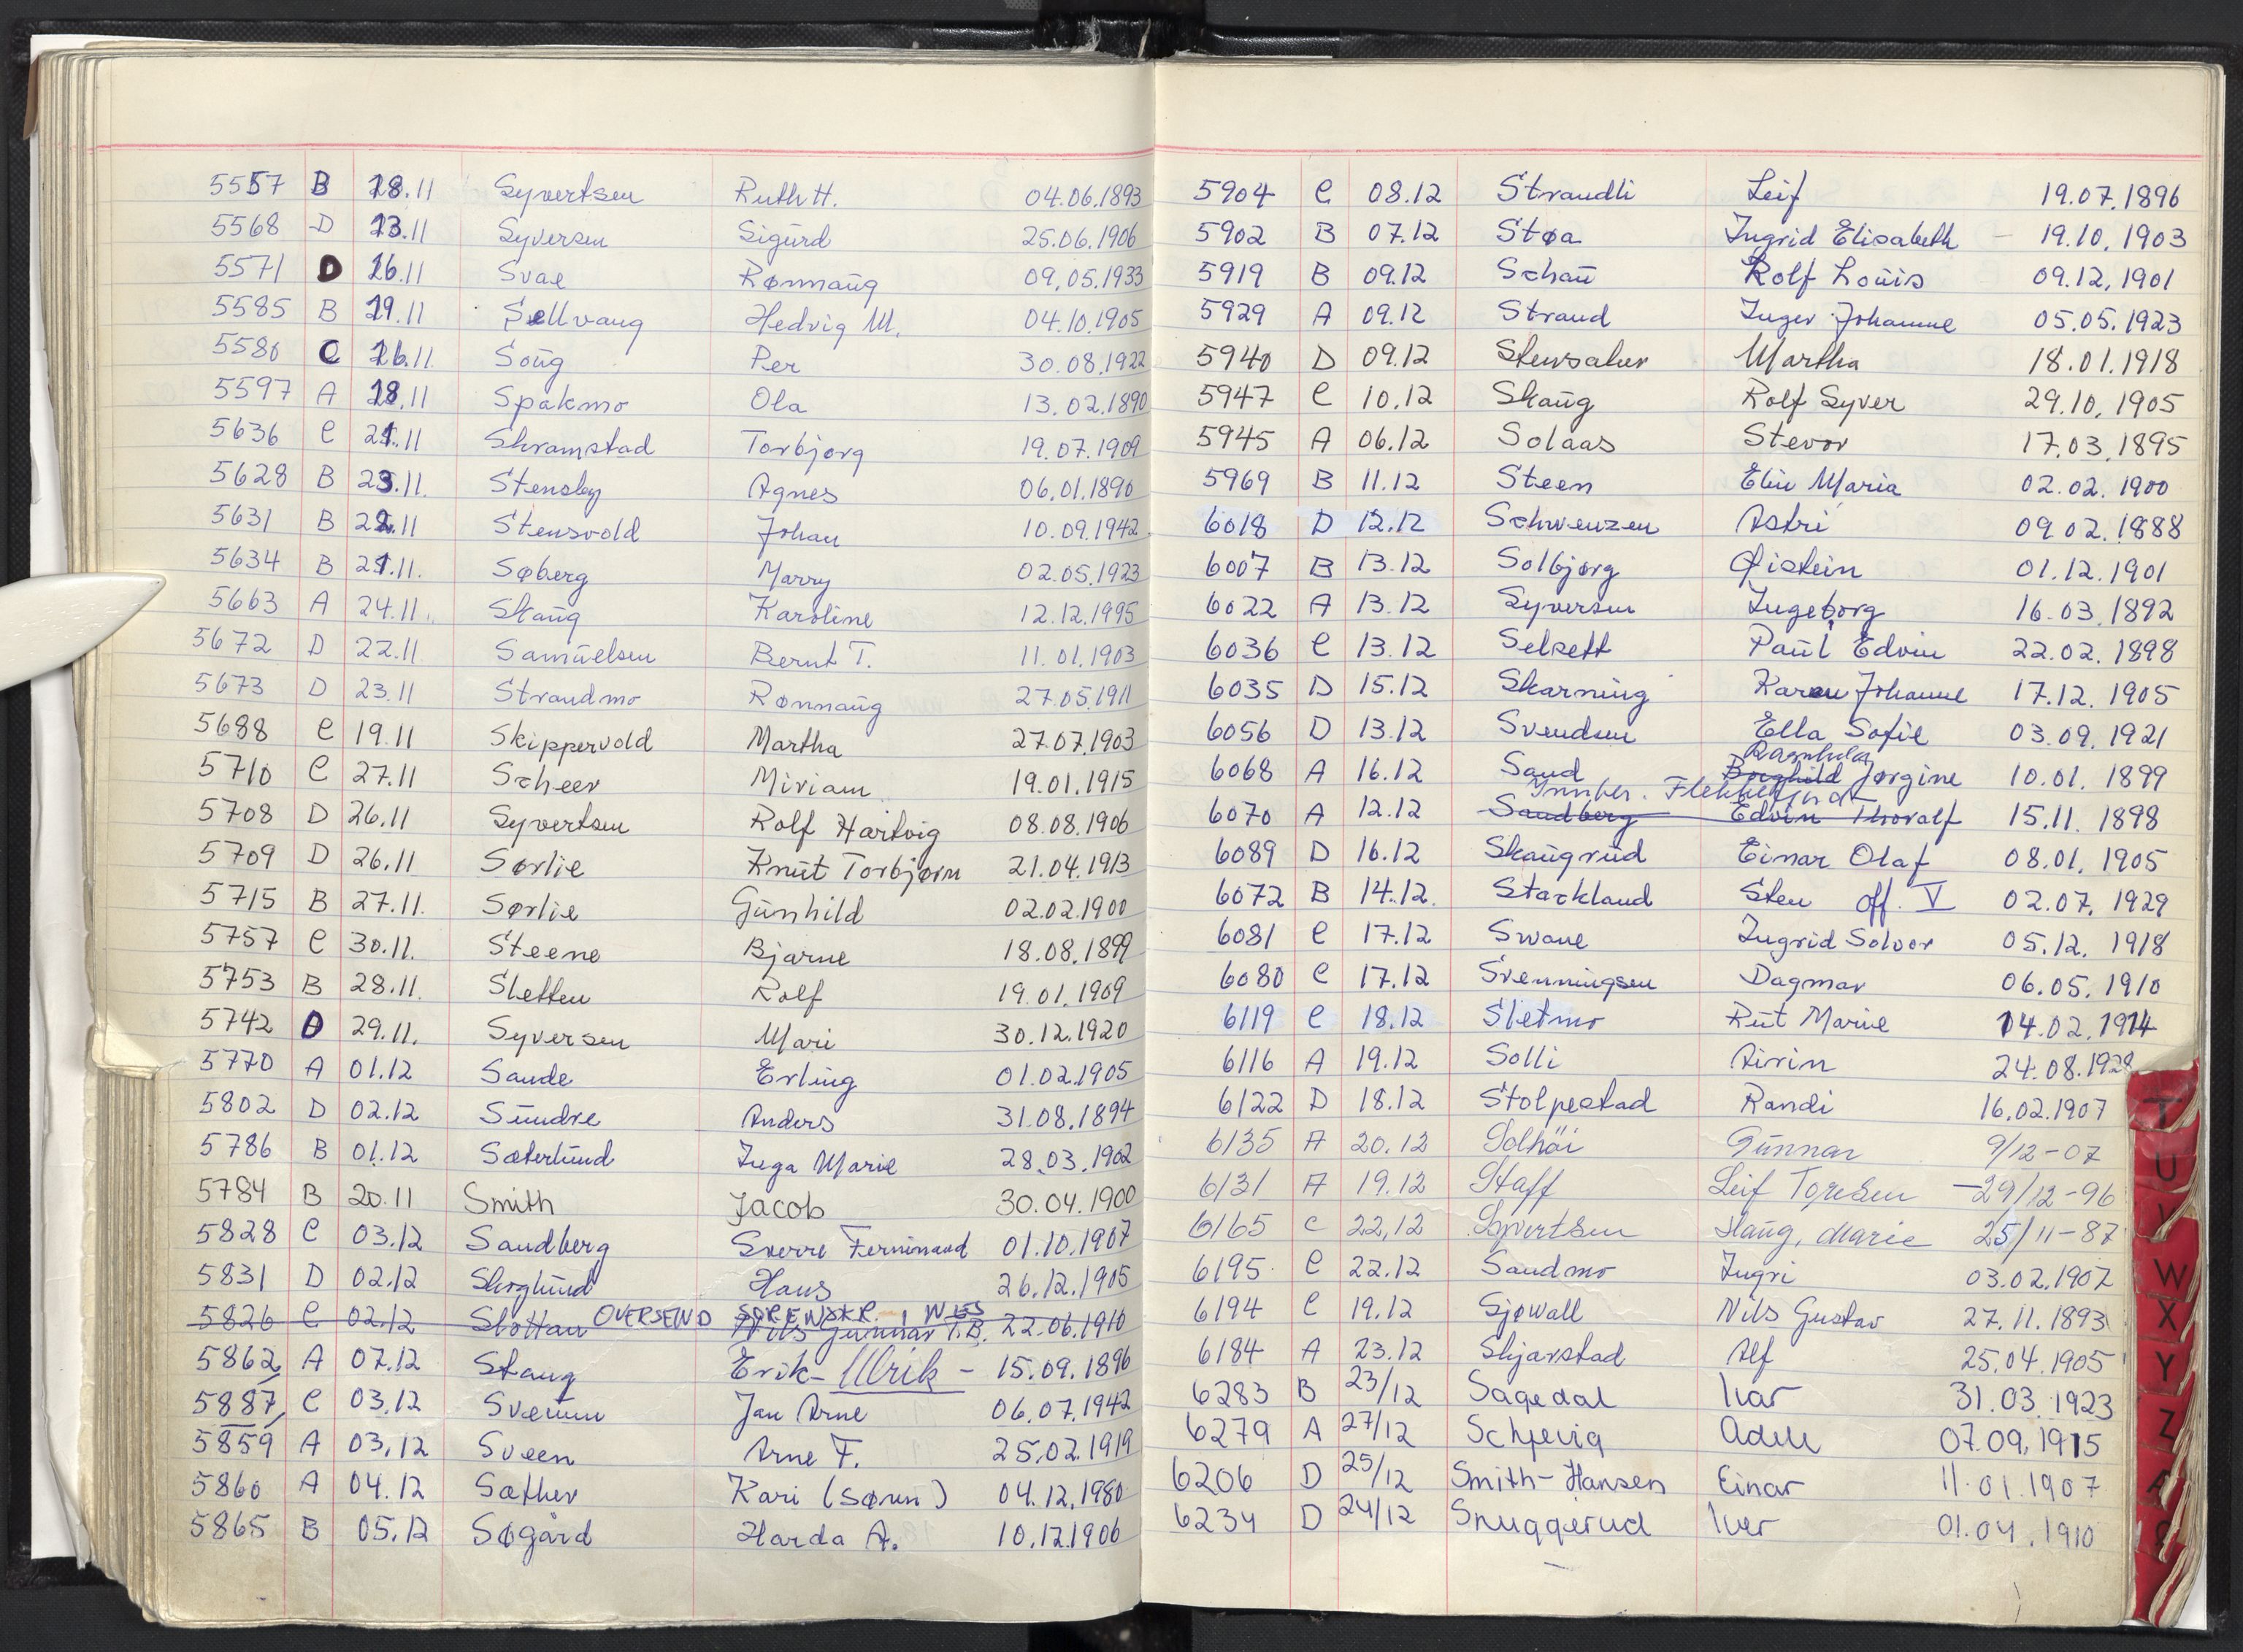 5557 B 18.11 Syvertsen Ruth H. 04.06.1893
5568 D 23.11 Syversen Sigurd 25.06.1906
5571 D 26.11 Svae Rønnaug 09.05.1933
5585 B 19.11 Sellvang Hedvig M. 04.10.1905
5580 C 26.11. Soug Per 30.08.1922
5597 A 18.11 Spakmo Ola 13.02.1890
5636 C 21.11 Skramstad Torbjørg 19.07.1909
5628 B 23.11. Stensby Agnes 06.01.1890
5631 B 22.11 Stensvold Johan 10.09.1942
5634 B 21.11. Søberg Marry 02.05.1923
5663 A 24.11. Skaug Karoline 12.12.1995
5672 D 22.11 Samuelsen Bernt T. 11.01.1903
5673 D 23.11 Strandmo Rønnaug 27.05.1911
5688 C 19.11 Skippervold Martha 27.07.1903
5710 C 27.11 Scheer Miriam 19.01.1915
5708 D 26.11 Syvertsen Rolf Hartvig 08.08.1906
5709 D 26.11 Sørlie Knut Torbjørn 21.04.1913
5715 B 27.11. Sørlie Gunhild 02.02.1900
5757 C 30.11. Steene Bjarne 18.08.1899
5753 B 28.11. Sletten Rolf 19.01.1909
5742 D 29.11. Syversen Mari 30.12.1920
5770 A 01.12 Sande Erling 01.02.1905
5802 D 02.12 Sundre Anders 31.08.1894
5786 B 01.12 Sæterlund Inga Marie 28.03.1902
5784 B 20.11 Smith Jacob 30.04.1900
5828 C 03.12 Sandberg Sverre Ferninand 01.10.1907
5831 D 02.12 Skoglund Hans 26.12.1905
OVERSEND SORENSKR. I NES
5826 C 02.12 Slottan Nils Gunnar T.B. 22.06.1910
5862 A 07.12 Stang Erik - Ulrik - 15.09.1896
5887 C 03.12 Sveum Jan Arne 06.07.1942
5859 A 03.12 Sveen Arne F. 25.02.1919
5860 A 04.12 Sæther Kari (Søren) 04.12.1980
5865 B 05.12 Søgård Harda A. 10.12.1906
5904 C 08.12 Strandli Leif 19.07.1896
5902 B 07.12 Støa Ingrid Elisabeth - 19.10.1903
5919 B 09.12 Schau Rolf Louis 09.12.1901
5929 A 09.12 Strand Inger Johanne 05.05.1923
5940 D 09.12 Stensaker Martha 18.01.1918
5947 C 10.12 Skaug Rolf Syver 29.10.1905
5945 A 06.12 Solaas Stevor 17.03.1895
5969 B 11.12 Steen Elin Maria 02.02.1900
6018 D 12.12 Schwenzen Astri 09 02.1888
6007 B 13.12 Solbjørg Øistein 01.12.1901
6022 A 13.12 Syversen Ingeborg 16.03.1892
6036 C 13.12 Selsett Paul Edvin 22.02.1898
6035 D 15.12 Skarning Karen Johanne 17.12.1905
6056 D 13.12 Svendsen Ella Sofie 03.09.1921
Ragnhild
6068 A 16.12 Sand Borghild Jørgine 10.01.1899
Innber. Flekkefjord
6070 A 12.12 Sandberg Edvin Thoralf 15.11.1898
6089 D 16.12 Skaugrud Einar Olaf 08.01.1905
6072 B 14.12. Starkland Sten off. V 02.07.1929
6081 C 17.12 Swane Ingrid Solvor 05.12.1918
6080 C 17.12 Svenningsen Dagmar 06.05.1910
6119 C 18.12 Sletmo Rut Marie 14.02.1914
6116 A 19.12 Solli Airin 24.08.1928
6122 D 18.12 Stolpestad Randi 16.02.1907
6135 A 20.12 Solhøi Gunnar 9/12-07
6131 A 19.12 Staff Leif Toresen - 29/12-96
6165 C 22.12 Syvertsen Haug, Marie 25/11-87
6195 C 22.12 Sandmo Ingri 03.02.1907
6194 C 19.12 Sjøwall Nils Gustav 27.11.1893
6184 A 23.12 Skjærstad Alf 25.04.1905
6283 B 23/12 Sagedal Ivar 31.03.1923
6279 A 27/12 Schjevig Adele 07.09.1915
6206 D 25/12 Smith-Hansen Einar 11.01.1907
6234 D 24/12 Snuggerud Iver 01.04.1910
T
U
V
W
X
Y
Z